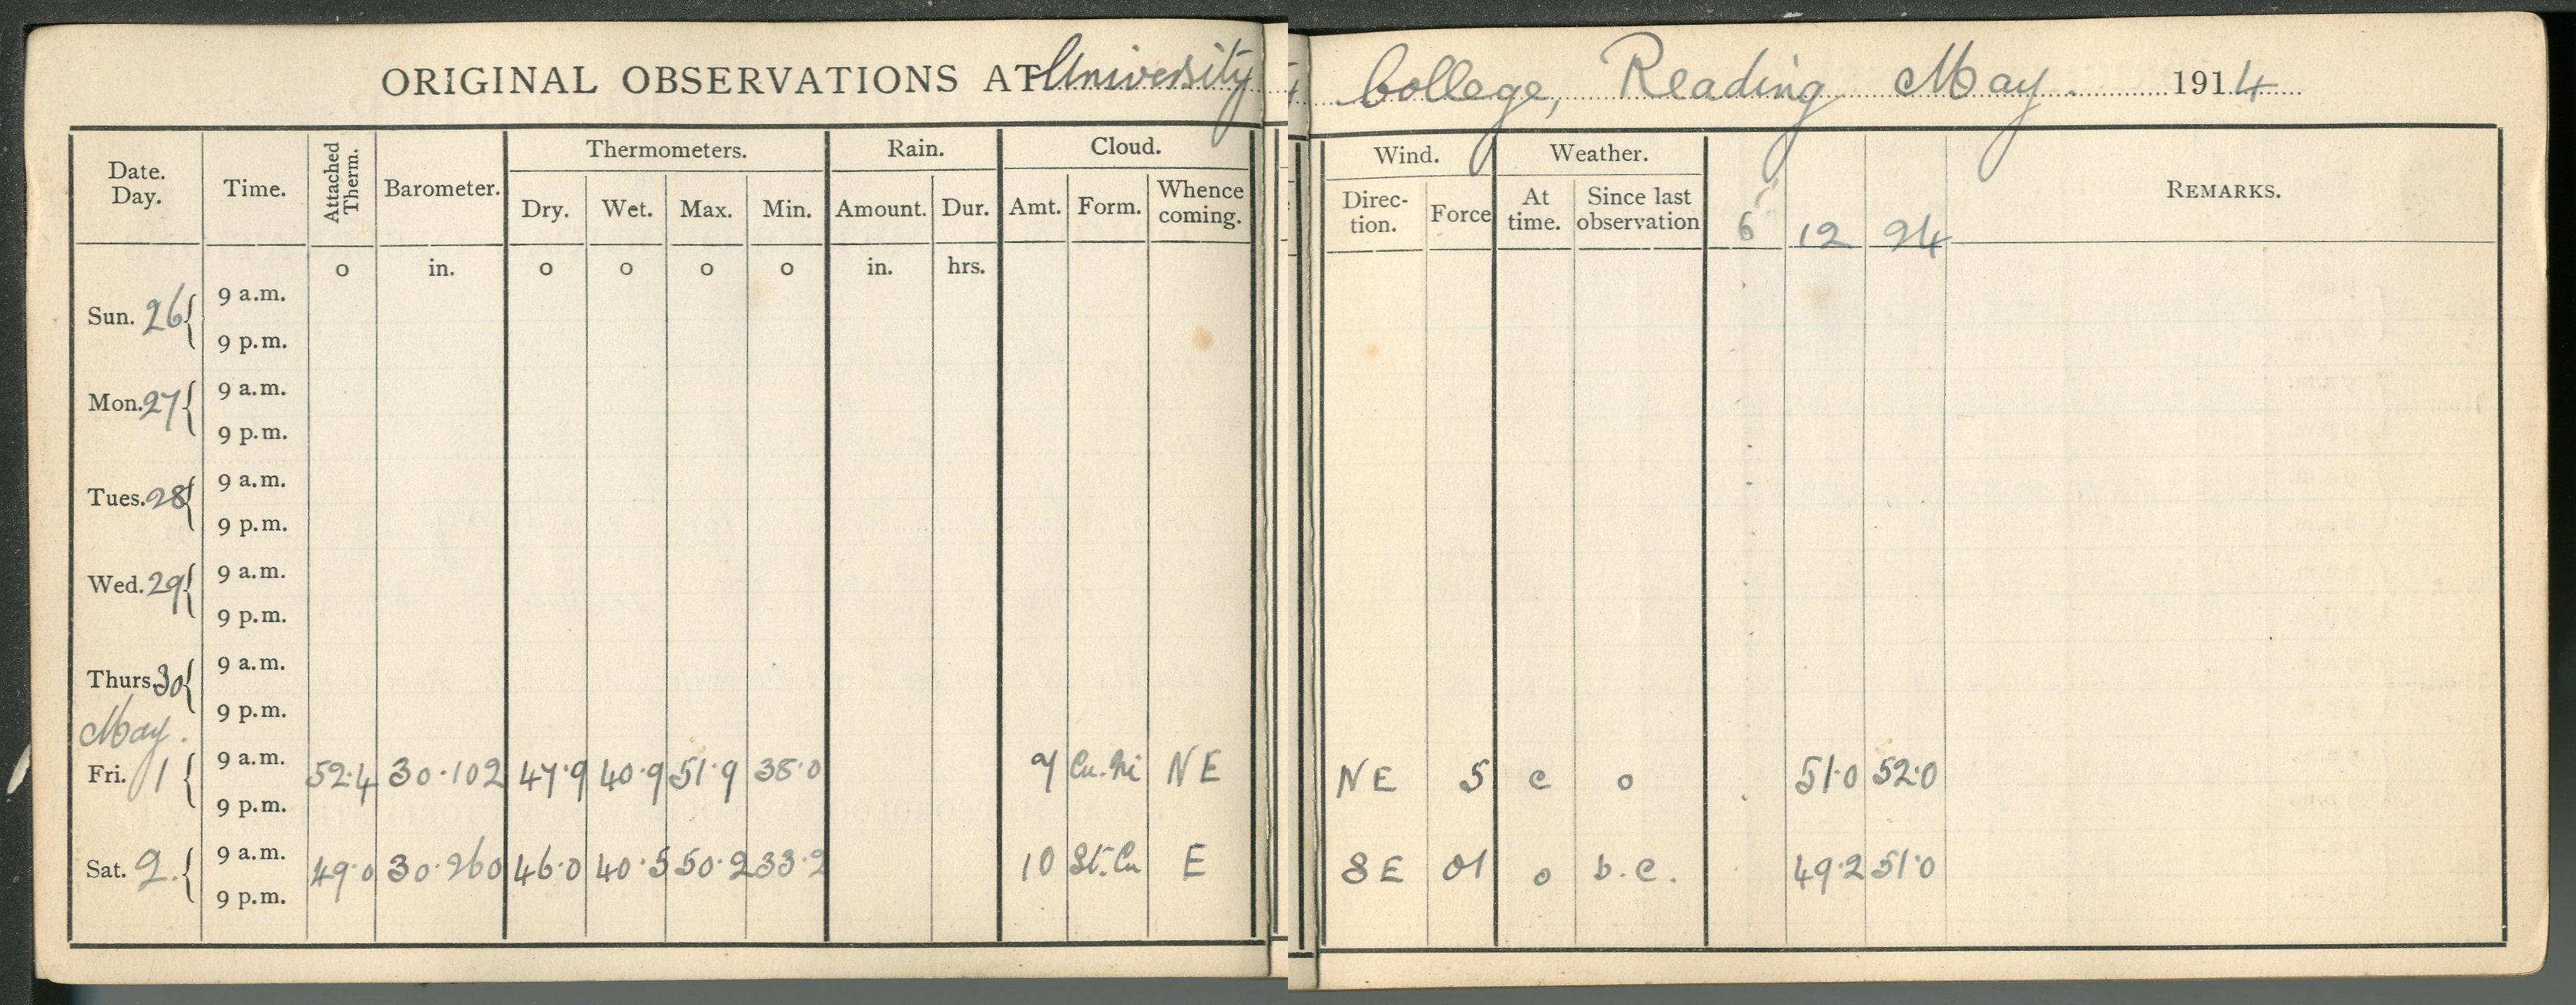 ORIGINAL OBSERVATIONS AT University College, Reading May. 1914
Date. Day. Time. Attached Therm. Barometer. Thermometers. Rain. Cloud. Wind. Weather. REMARKS.
Dry. Wet. Max. Min. Amount. Dur. Amt. Form. Whence coming. Direc- tion. Force At time. Since last observation 6" 12 24
o in. o o o o in. hrs.
Sun. 26 9 a.m.
9 p.m.
Mon. 27 9 a.m.
9 p.m.
Tues. 28 9 a.m.
9 p.m.
Wed. 29 9 a.m.
9 p.m.
Thurs. 30 9 a.m.
9 p.m.
May.
Fri. 1 9 a.m. 52.4 30.102 47.9 40.9 51.9 38.0 9 Cu.Ni NE NE 5 c o 51.0 52.0
9 p.m.
Sat. 2. 9 a.m. 49.0 30.260 46.0 40.5 50.2 33.2 10 St.Cu E SE 01 o b.c. 49.2 51.0
9 p.m.